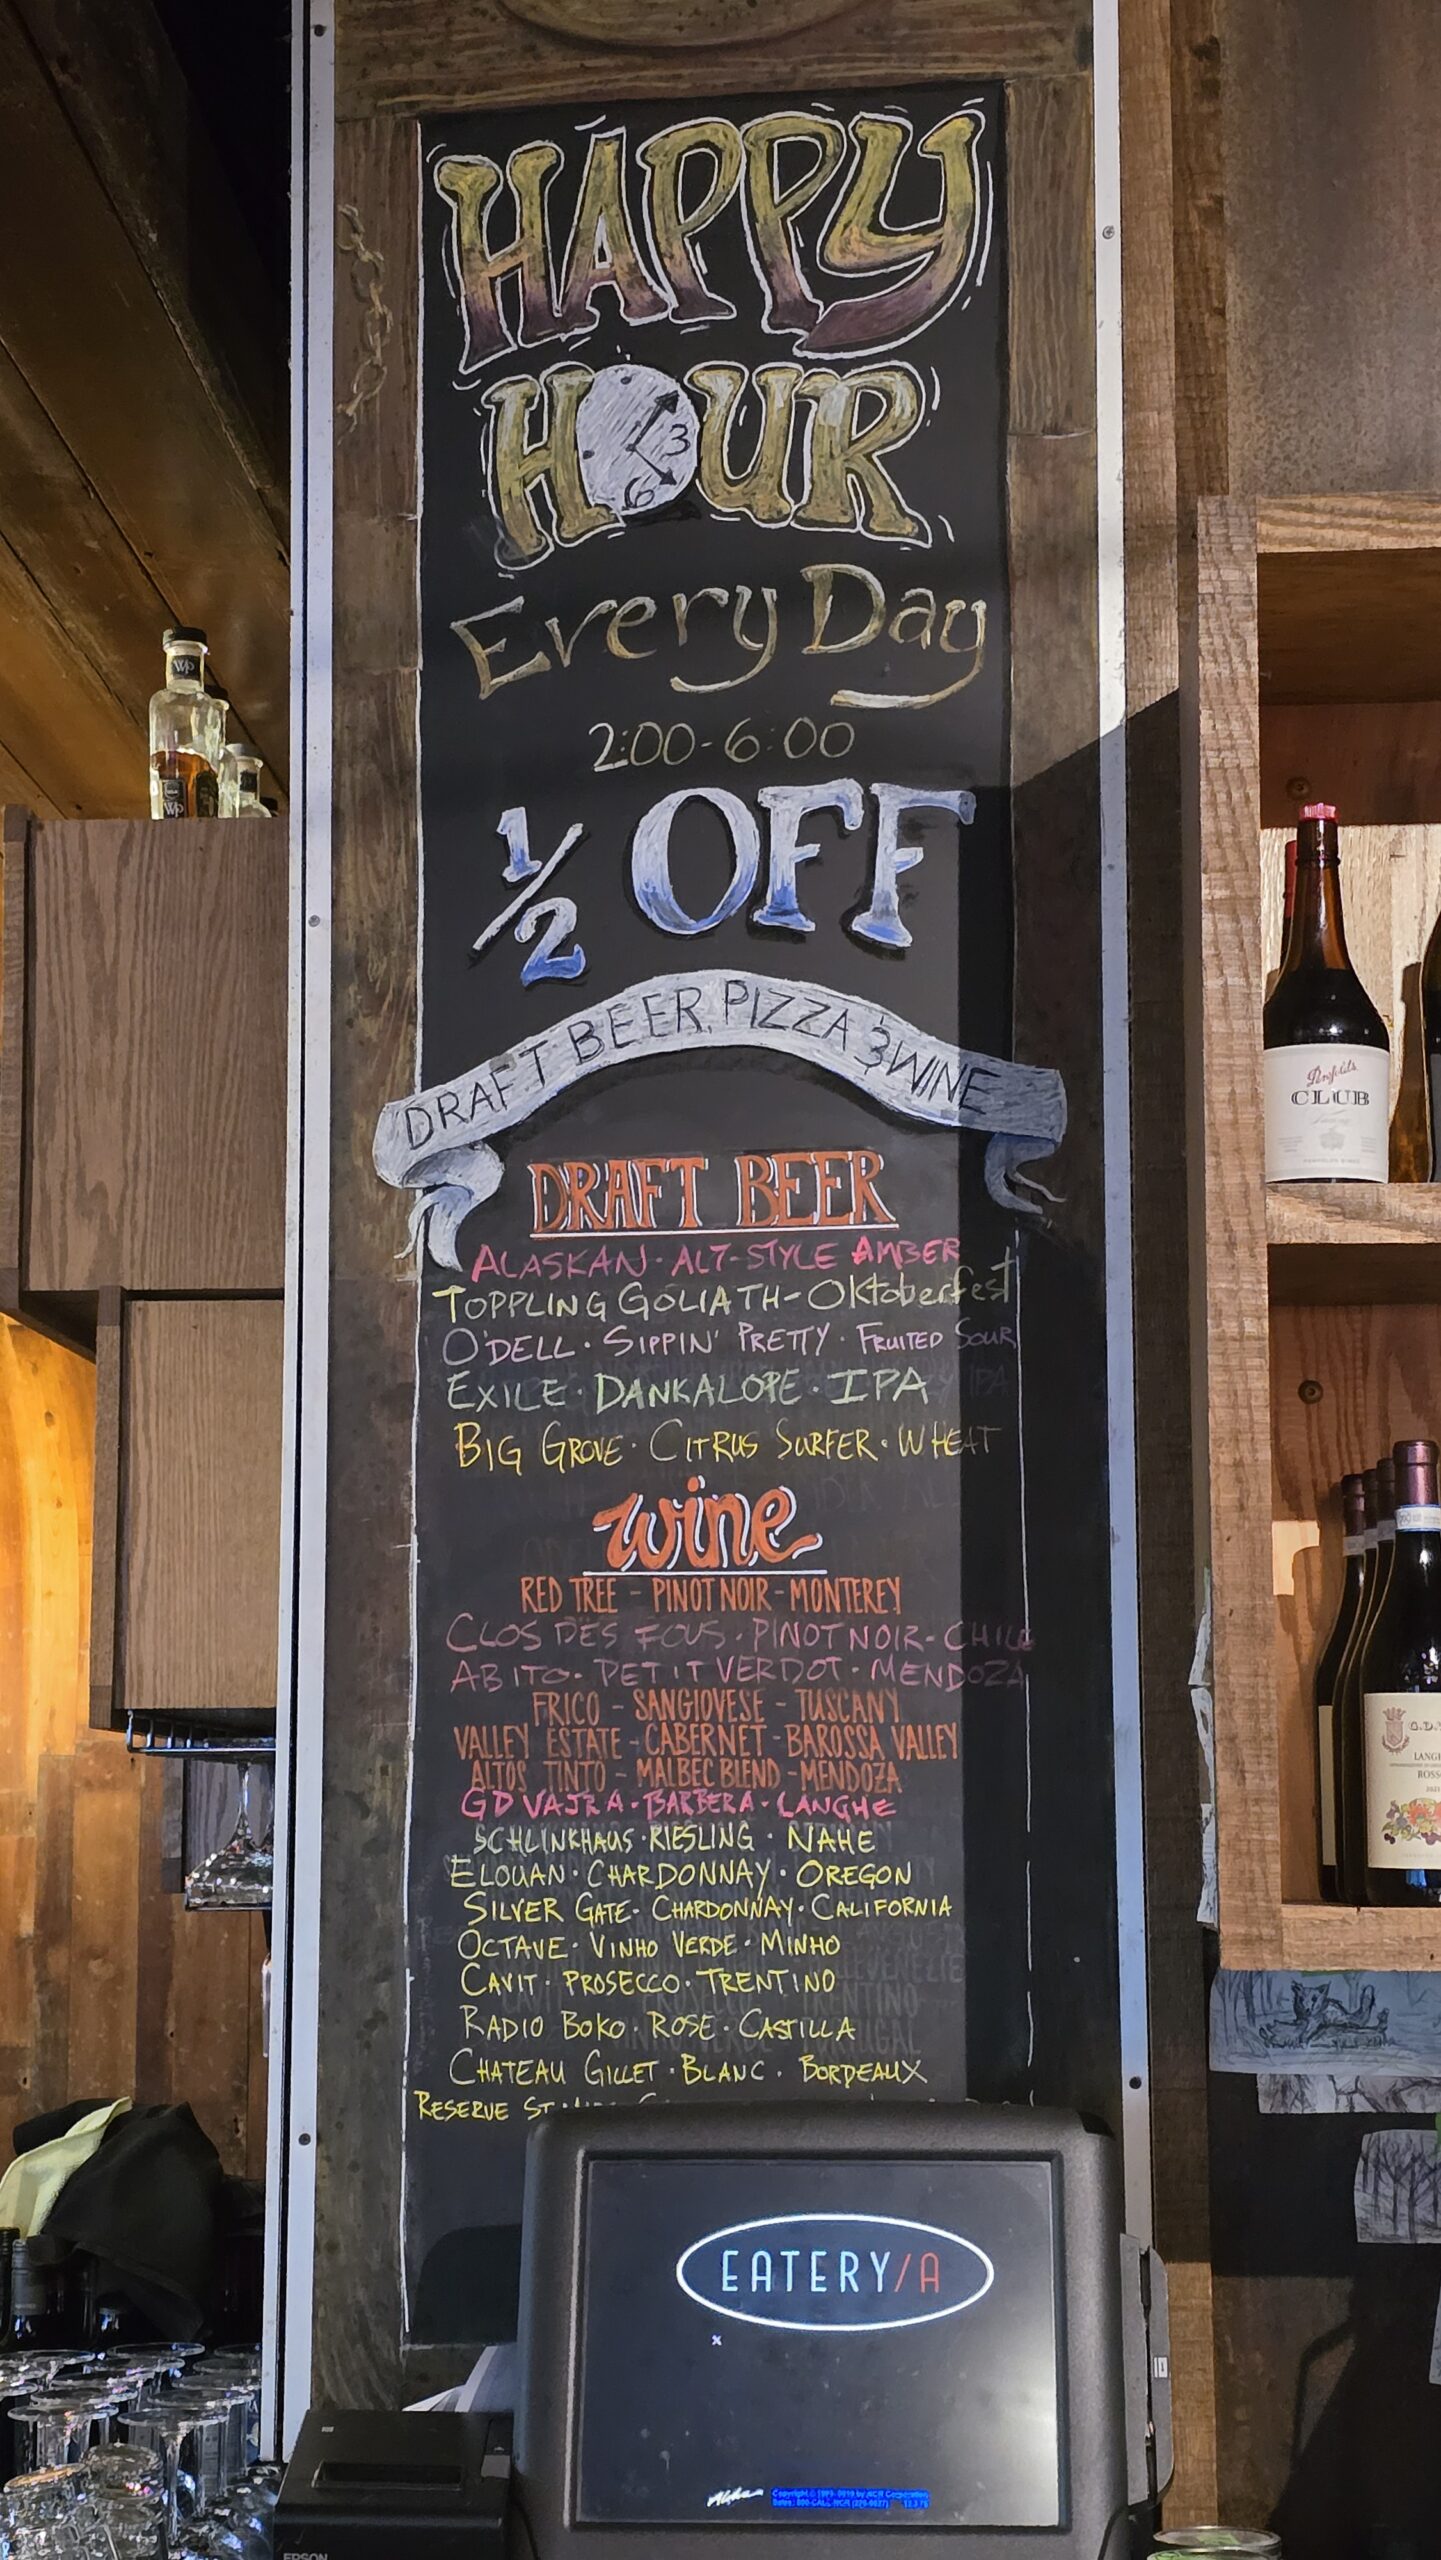 HAPPY
HOUR
3
6
Every Day
2:00-6:00
1/2 OFF
DRAFT BEER, PIZZA & WINE
DRAFT BEER
ALASKAN · ALT-STYLE AMBER
TOPPLING GOLIATH - Oktoberfest
O'DELL · SIPPIN' PRETTY · FRUITED SOUR
EXILE · DANKALOPE · IPA
BIG GROVE · CITRUS SURFER · WHEAT
wine
RED TREE - PINOT NOIR - MONTEREY
CLOS DES FOUS · PINOT NOIR - CHILE
ABITO · PETIT VERDOT · MENDOZA
FRICO - SANGIOVESE - TUSCANY
VALLEY ESTATE - CABERNET - BAROSSA VALLEY
ALTOS TINTO - MALBEC BLEND - MENDOZA
GD VAJRA · BARBERA · LANGHE
SCHLINKHAUS · RIESLING · NAHE
ELOUAN · CHARDONNAY · OREGON
SILVER GATE · CHARDONNAY · CALIFORNIA
OCTAVE · VINHO VERDE · MINHO
CAVIT · PROSECCO · TRENTINO
RADIO BOKO · ROSE · CASTILLA
CHATEAU GILLET · BLANC · BORDEAUX
RESERVE
EATERY/A
Aloha
EPSON
Penfolds
CLUB
G.D.
LANGHE
ROSSO
WP
WP